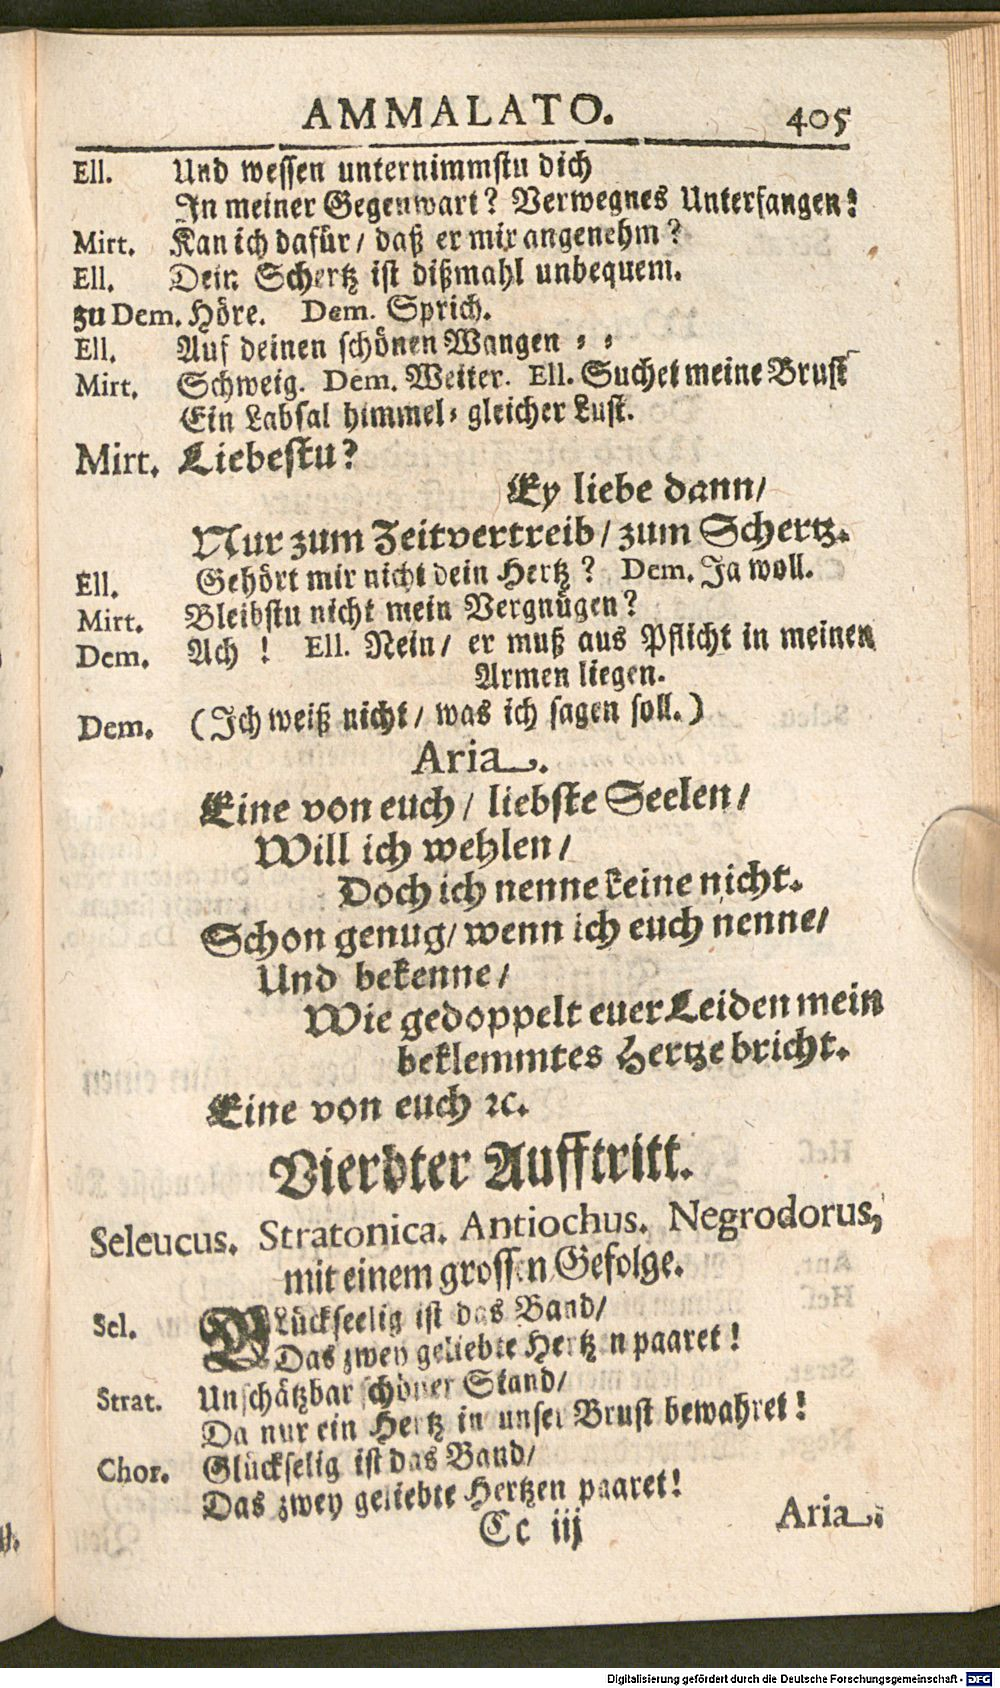 AMMALATO. 405
Ell. Und wessen unternimmstu dich
In meiner Gegenwart? Verwegnes Unterfangen!
Mirt. Kan ich dafür/ daß er mir angenehm?
Ell. Dein Schertz ist dißmahl unbequem.
zu Dem. Höre. Dem. Sprich.
Ell. Auf deinen schönen Wangen ⸗ ⸗
Mirt. Schweig. Dem. Weiter. Ell. Suchet meine Brust
Ein Labsal himmel⸗gleicher Lust.
Mirt. Liebestu?
Ey liebe dann/
Nur zum Zeitvertreib/ zum Schertz.
Ell. Gehört mir nicht dein Hertz? Dem. Ja woll.
Mirt. Bleibstu nicht mein Vergnügen?
Dem. Ach! Ell. Nein/ er muß aus Pflicht in meinen
Armen liegen.
Dem. (Ich weiß nicht/ was ich sagen soll.)
Aria.
Eine von euch/ liebste Seelen/
Will ich wehlen/
Doch ich nenne keine nicht.
Schon genug/ wenn ich euch nenne/
Und bekenne/
Wie gedoppelt euer Leiden mein
beklemmtes Hertze bricht.
Eine von euch ꝛc.
Vierdter Aufftritt.
Seleucus. Stratonica. Antiochus. Negrodorus,
mit einem grossen Gefolge.
Sel. GLückseelig ist das Band/
Das zwey geliebte Hertzen paaret!
Strat. Unschätzbar schöner Stand/
Da nur ein Hertz in unser Brust bewahret!
Chor. Glückselig ist das Band/
Das zwey geliebte Hertzen paaret!
Cc iij Aria.
Digitalisierung gefördert durch die Deutsche Forschungsgemeinschaft - DFG